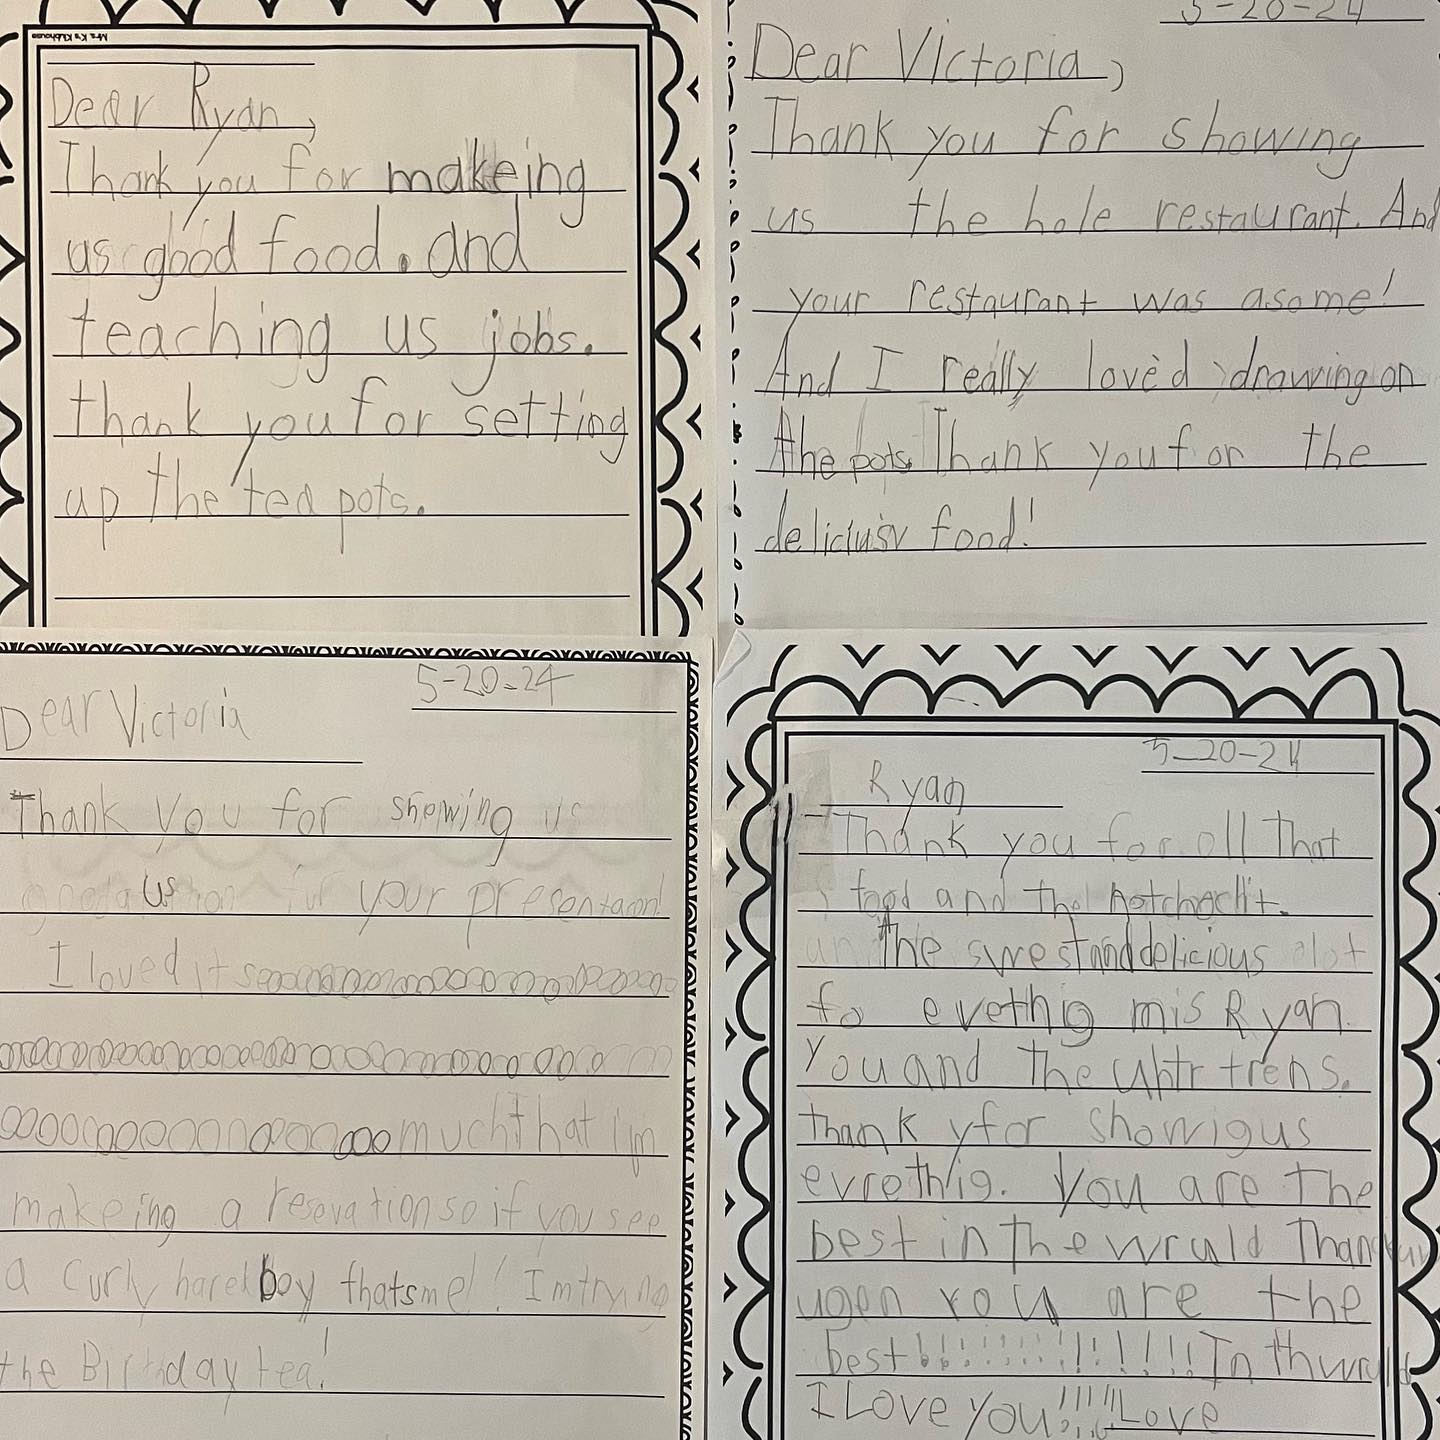 Mrs. K's Klubhouse
Dear Ryan,
Thank you for makeing
us good food. and
teaching us jobs.
thank you for setting
up the tea pots.
5-20-24
Dear Victoria,
Thank you for showing
us the hole restaurant. And
your restaurant was asome!
And I really loved drawing on
the pots. Thank you for the
deliciusv food!
5-20-24
Dear Victoria
Thank you for showing us
us your presentaron!
I loved it sooooooooooooooooooooooo
oooooooooooooooooooooooooo
ooooooooooooooooooo much that i'm
makeing a resevation so if you see
a curly hared boy thatsme! I'm trying
the Birthday tea!
5-20-24
Ryan
Thank you for all that
food and the hotchoclit.
The swrestand delicious alot
fo evethig mis Ryan.
You and the uhtr trens.
thank y for showigus
evrethig. You are the
best in the wruld Thank yuv
ugen you are the
best!!!!!!!!!!!!! In thwruld
I Love you!!!!!! Love